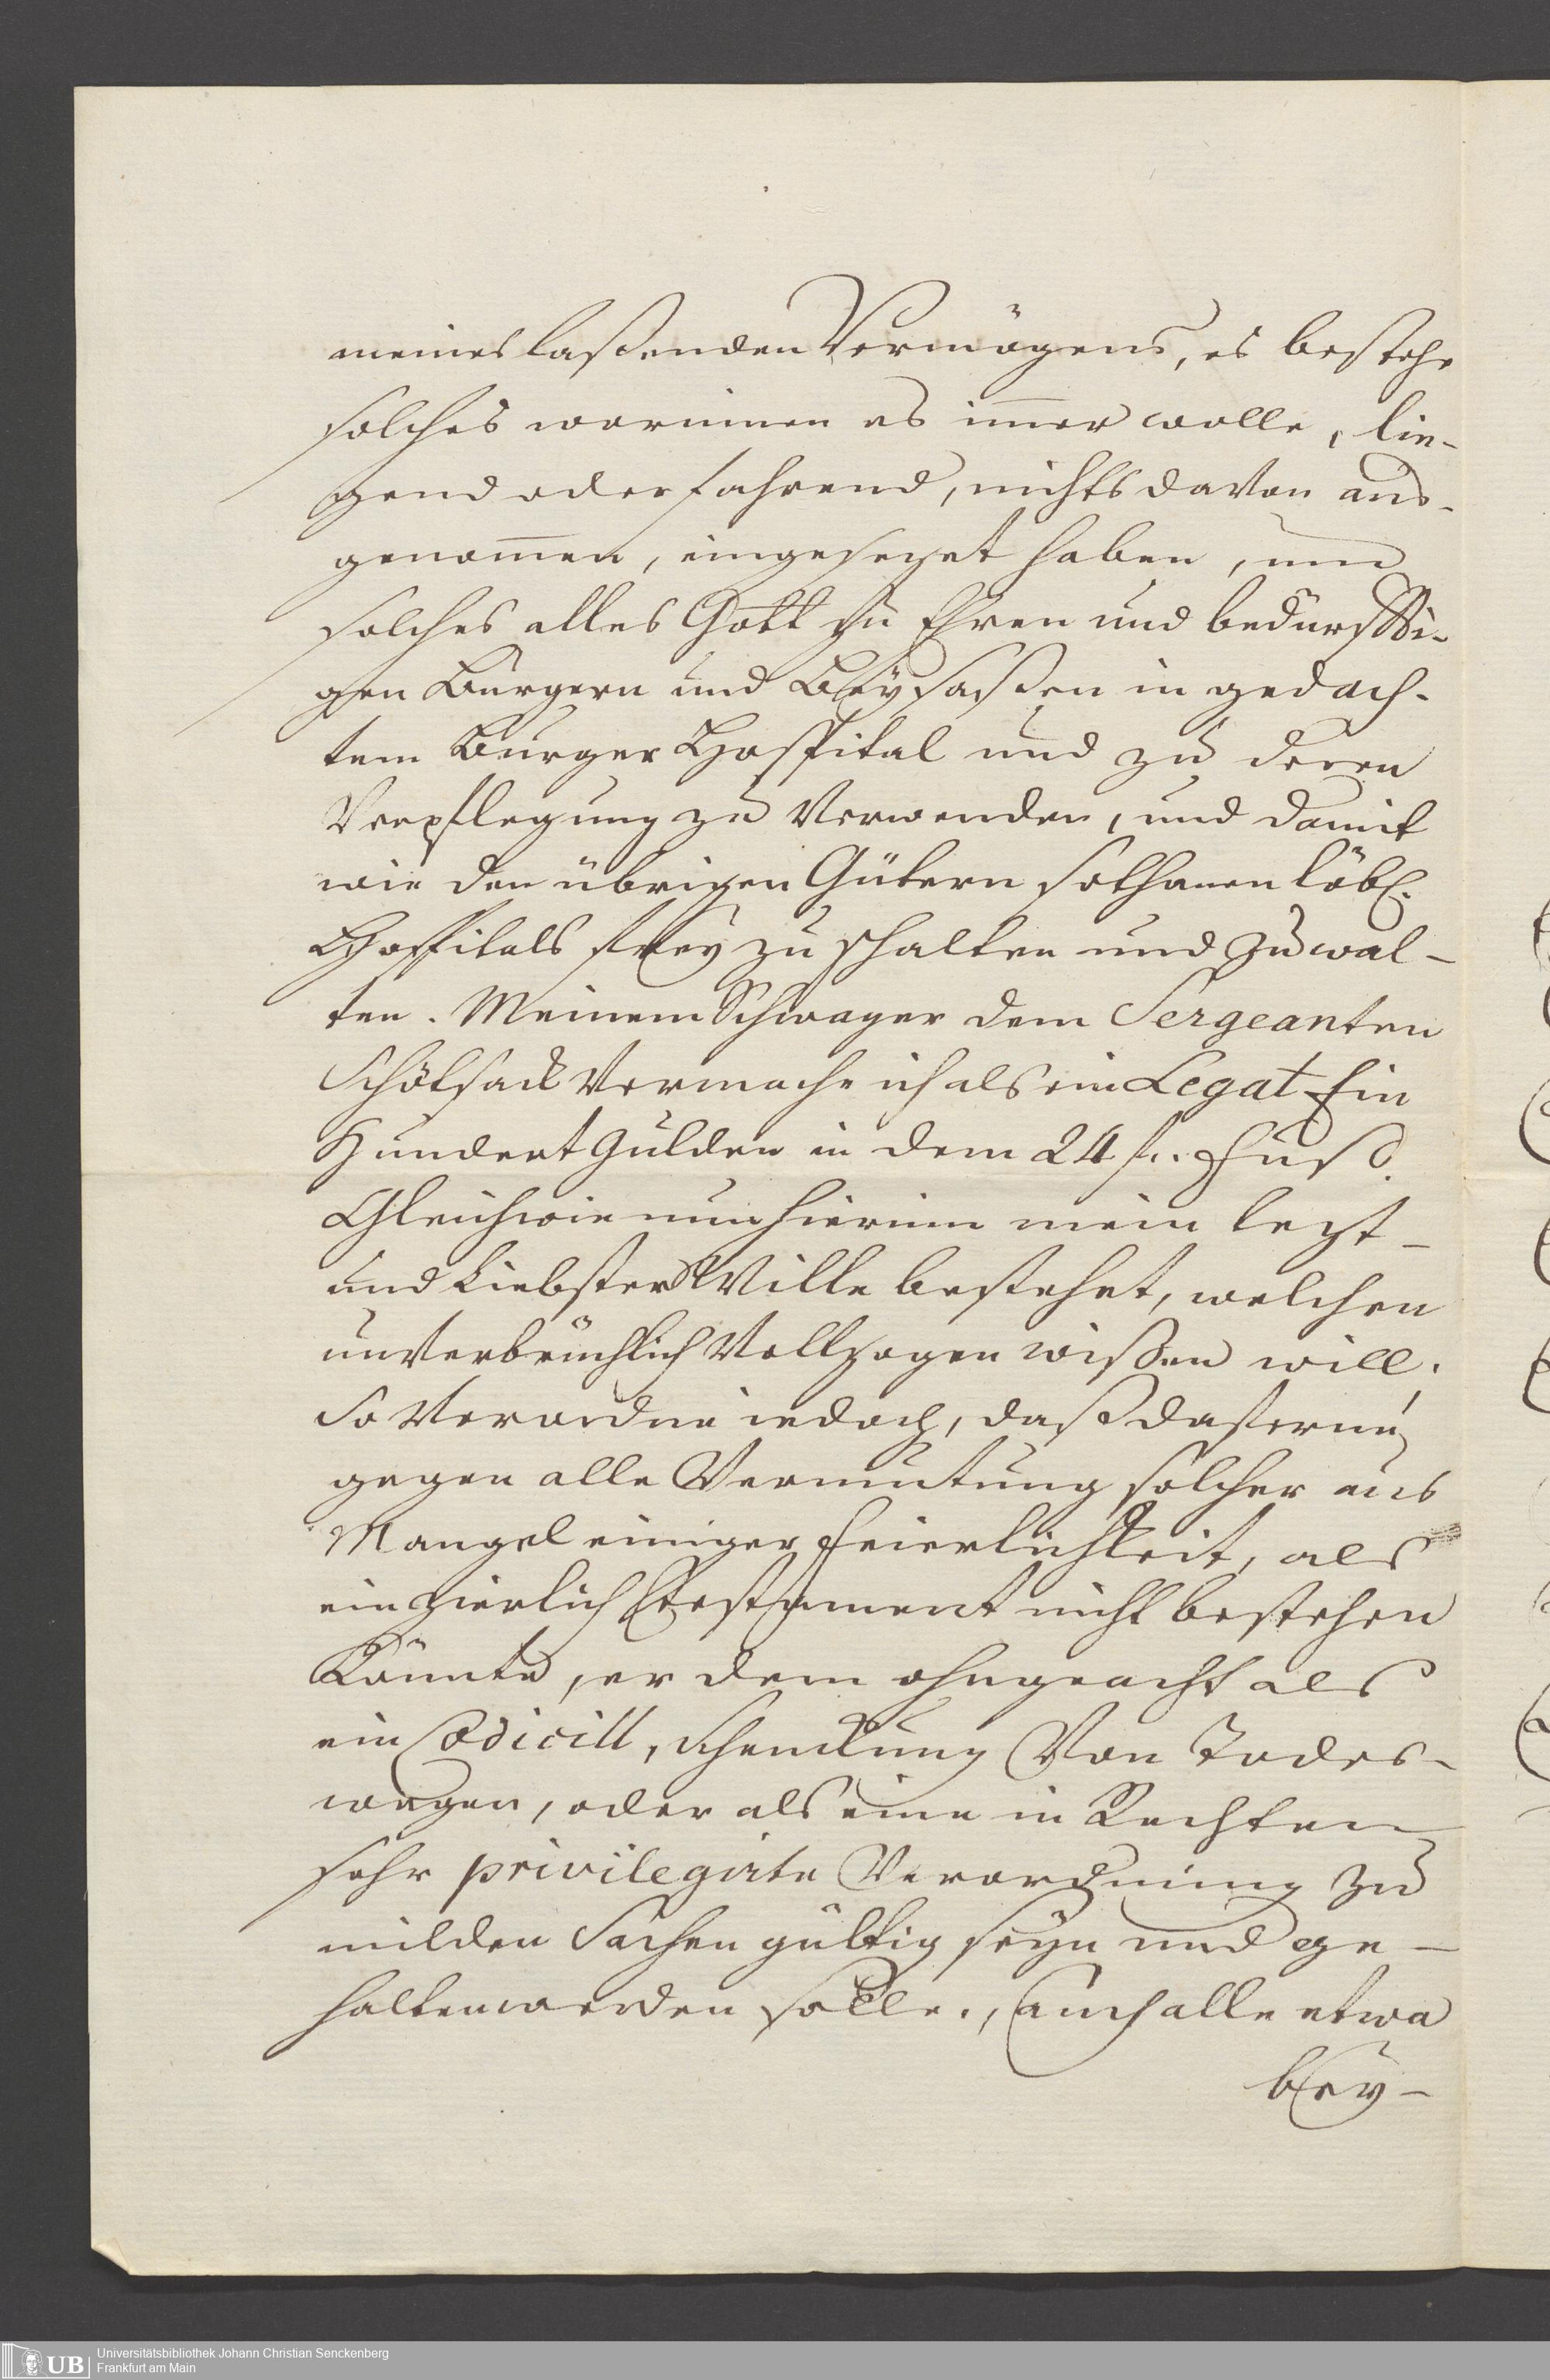 meines laßenden Vermögens, es bestehe
solches worinnen es im̅er wolle, lie-
gend oder fahrend, nichts davon aus-
genom̅en, eingesezet haben, um
solches alles Gott zu Ehren und bedürffti-
gen Burgern und Beysaßen in gedach-
tem Burger Hospital und zu deren
Verpflegung zu verwenden, und damit
wie den übrigen Gütern sothanen löbl.
Hospitals frey zu schalten und zu wal-
ten. Meinem Schwager dem Sergeanten
vermache ich als ein Legat Ein
Hundert Gulden in dem 24 fl. Fuß.
Gleichwie nun hierinn mein lezt-
und liebster Wille bestehet, welchen
unverbrüchlich vollzogen wißen will.
So verordne iedoch, daß daferne,
gegen alle Vermutung solcher aus
Mangel einiger Feierlichkeit, als
ein zierlich Testament nicht bestehen
könnte, er dem ohngeacht als
ein Codicill, Schenckung von Todes-
wegen, oder als eine in Rechten
sehr privilegirte Verordnung zu
milden Sachen gültig seyn und ge-
halten werden solle., auch alle etwa
bey-
UB
Universitätsbibliothek Johann Christian Senckenberg
Frankfurt am Main